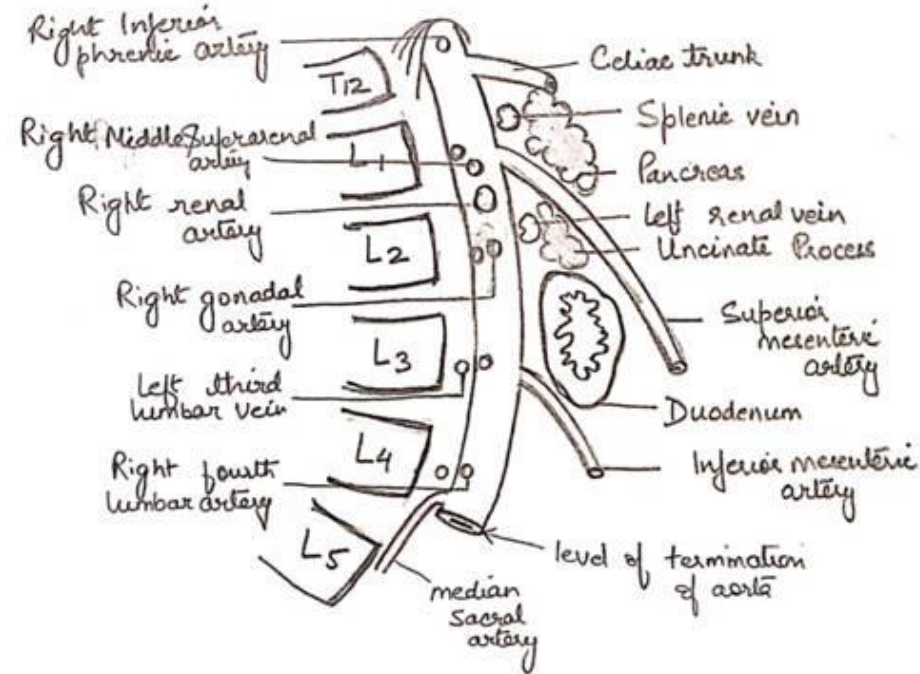 Right Inferior
phrenic artery
T12
Right Middle Suprarenal
artery
L1
Right renal
artery
L2
Right gonadal
artery
L3
Left third
lumbar vein
L4
Right fourth
lumbar artery
L5
median
sacral
artery
Celiac trunk
Splenic vein
Pancreas
Left renal vein
Uncinate Process
Superior
mesenteric
artery
Duodenum
Inferior mesenteric
artery
level of termination
of aorta